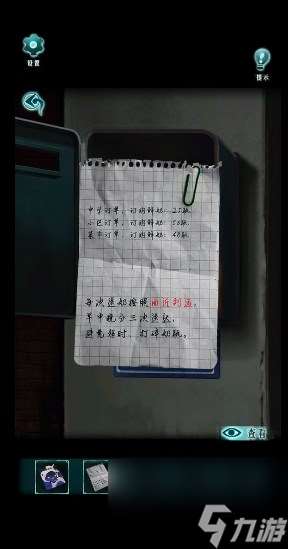 设置
提示
中学订单：订购鲜奶：25瓶
小区订单：订购鲜奶：50瓶
菜市订单：订购鲜奶：40瓶
每次送奶按照由近到远，
早中晚分三次送达，
避免超时，打碎奶瓶。
查看
九游